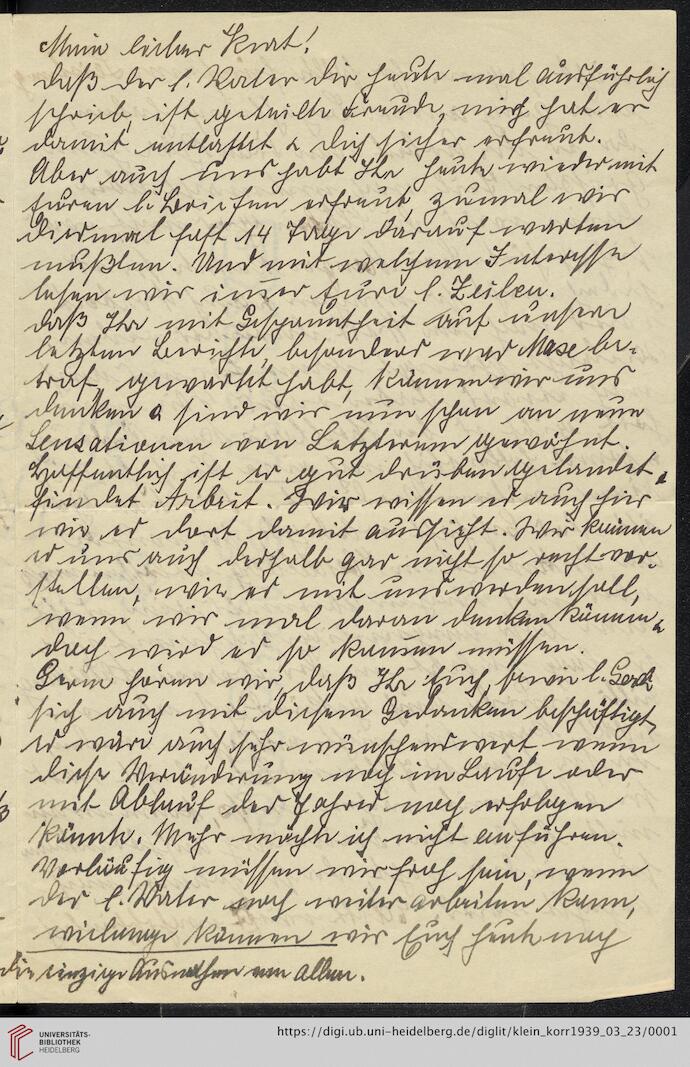 Mein lieber Kurt!
daß der l. Vater dir heute mal ausführlich
schrieb, ist geteilte Freude, mich hat er
damit entlastet & dich sicher erfreut.
Aber auch uns habt Ihr heute wieder mit
euren l. Briefen erfreut, zumal wir
diesmal fast 14 Tage darauf warten
mußten. Und mit welchem Interesse
lesen wir immer Eure l. Zeilen.
daß Ihr mit Gespanntheit auf unsere
letzten Berichte, besonders was Maxe be-
traf, gewartet habt, können wir uns
denken & sind wir nun schon an neue
Sensationen von Letzterem gewöhnt.
Hoffentlich ist er gut drüben gelandet &
findet Arbeit. Wir wissen es auch hier
wie es dort damit aussieht. Wir können
es uns auch deshalb gar nicht so recht vor-
stellen, wie es mit uns werden soll,
wenn wir mal daran denken können &
doch wird es so kommen müssen.
Gern hören wir, daß Ihr Euch, sowie l.
sich auch mit diesem Gedanken beschäftigt,
es wäre auch sehr wünschenswert wenn
diese Veränderung noch im Laufe oder
mit Ablauf des Jahres noch erfolgen
könnte. Mehr möchte ich nicht anführen.
Vorläufig müssen wir froh sein, wenn
der l. Vater noch weiter arbeiten kann,
wielange können wir Euch heute noch
die einzige Ausnahme von allen.
UNIVERSITÄTS-
BIBLIOTHEK
HEIDELBERG
https://digi.ub.uni-heidelberg.de/diglit/klein_korr1939_03_23/0001